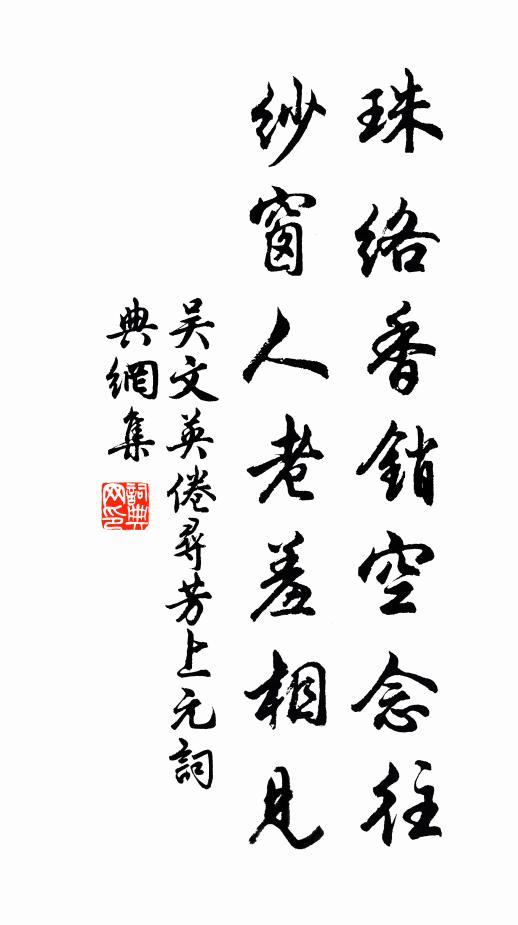 珠络香銷空念往
纱窗人老羞相見
吴文英倦尋芳上元詞
典網集
詞典网印